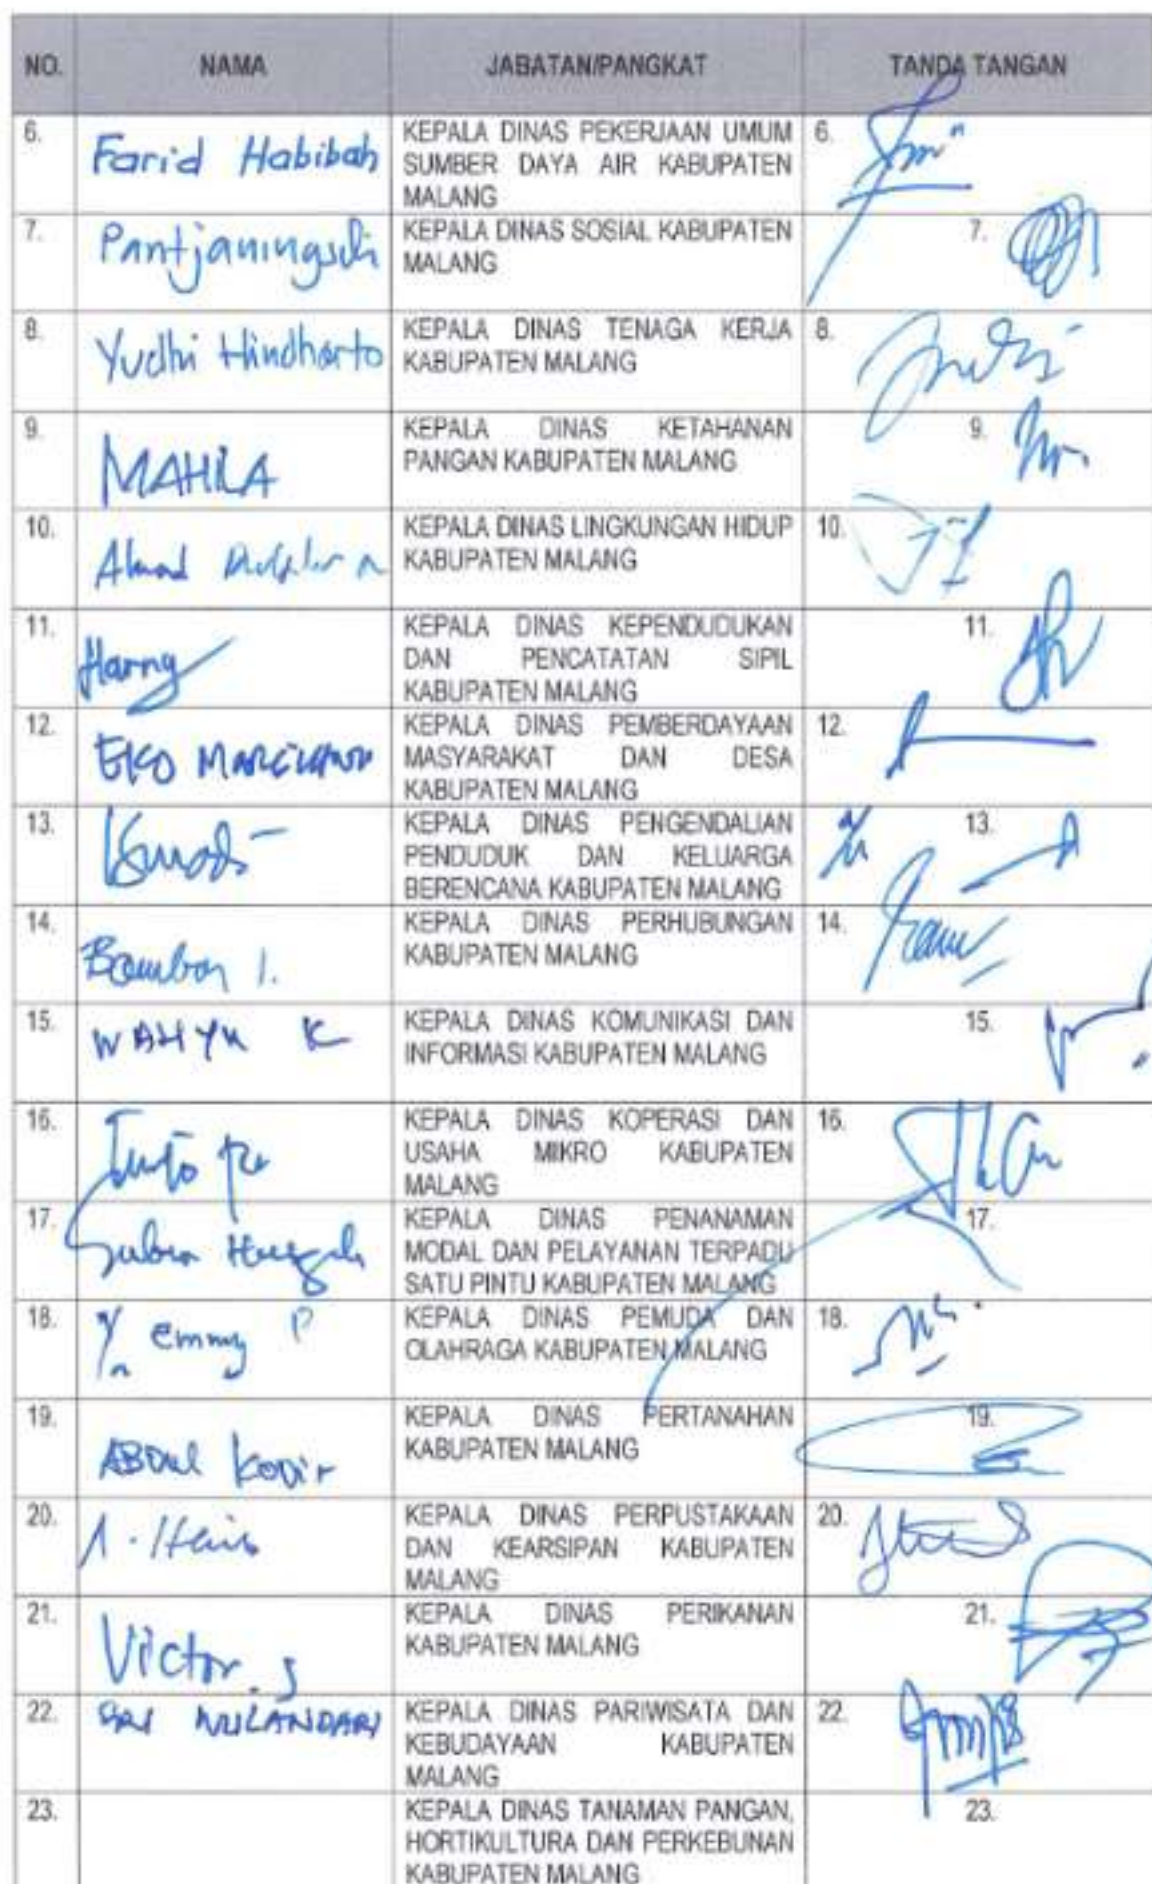 NO. NAMA JABATAN/PANGKAT TANDA TANGAN
6. Farid Habibah KEPALA DINAS PEKERJAAN UMUM 6.
SUMBER DAYA AIR KABUPATEN
MALANG
7. Pantjaningsih KEPALA DINAS SOSIAL KABUPATEN 7.
MALANG
8. Yudhi Hindharto KEPALA DINAS TENAGA KERJA 8.
KABUPATEN MALANG
9. MAHILA KEPALA DINAS KETAHANAN 9.
PANGAN KABUPATEN MALANG
10. KEPALA DINAS LINGKUNGAN HIDUP 10.
KABUPATEN MALANG
11. Harry KEPALA DINAS KEPENDUDUKAN 11.
DAN PENCATATAN SIPIL
KABUPATEN MALANG
12. EKO KEPALA DINAS PEMBERDAYAAN 12.
MASYARAKAT DAN DESA
KABUPATEN MALANG
13. KEPALA DINAS PENGENDALIAN 13.
PENDUDUK DAN KELUARGA
BERENCANA KABUPATEN MALANG
14. KEPALA DINAS PERHUBUNGAN 14.
KABUPATEN MALANG
15. WAHYU K KEPALA DINAS KOMUNIKASI DAN 15.
INFORMASI KABUPATEN MALANG
16. KEPALA DINAS KOPERASI DAN 16.
USAHA MIKRO KABUPATEN
MALANG
17. KEPALA DINAS PENANAMAN 17.
MODAL DAN PELAYANAN TERPADU
SATU PINTU KABUPATEN MALANG
18. emmy P KEPALA DINAS PEMUDA DAN 18.
OLAHRAGA KABUPATEN MALANG
19. ABDUL KODIR KEPALA DINAS PERTANAHAN 19.
KABUPATEN MALANG
20. KEPALA DINAS PERPUSTAKAAN 20.
DAN KEARSIPAN KABUPATEN
MALANG
21. Victor. S KEPALA DINAS PERIKANAN 21.
KABUPATEN MALANG
22. KEPALA DINAS PARIWISATA DAN 22.
KEBUDAYAAN KABUPATEN
MALANG
23. KEPALA DINAS TANAMAN PANGAN, 23.
HORTIKULTURA DAN PERKEBUNAN
KABUPATEN MALANG